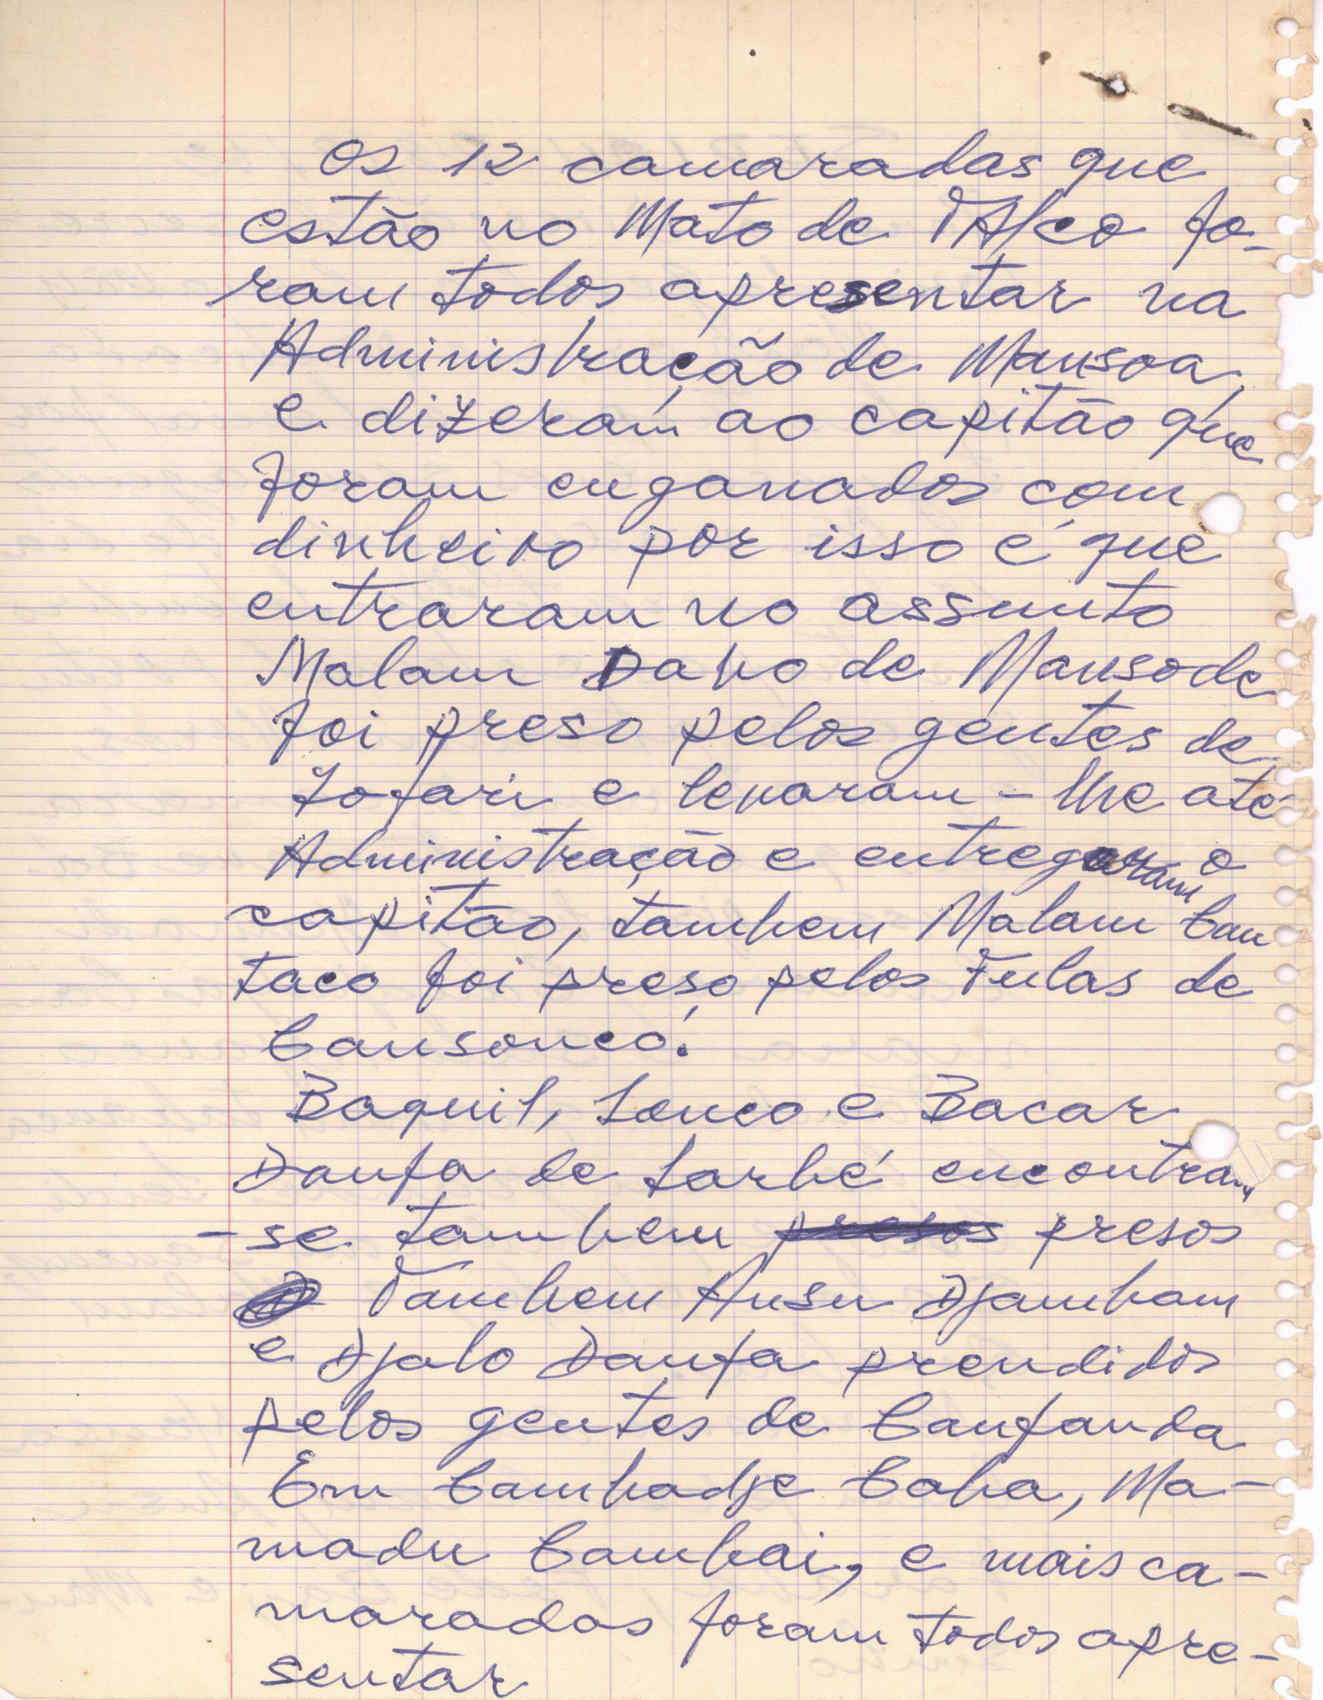 Os 12 camaradas que
estão no Mato de Talco fo-
ram todos apresentar na
Administração de Mansoa,
e dizeram ao capitão que
foram enganados com
dinheiro por isso é que
entraram no assunto
Malam Dabo de Mansode
foi preso pelos gentes de
e levaram-lhe até
Administração e entregaram o
capitão, tambem Malam Can
taco foi preso pelos Fulas de
Cansoncó.
Baquil, Sonco e Bacar
Danfa de Sarbé encontram
-se tambem presos presos
Tambem Ansu Djambam
e Djalo Danfa prendidos
pelos gentes de Canfanda
Em Cambadje Caba, Ma-
madu Cambai, e mais ca-
maradas foram todos apre-
sentar